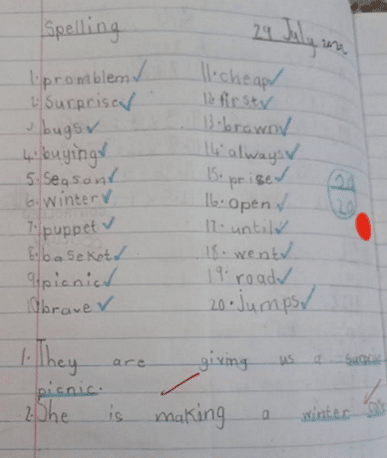 Spelling 29 July
1. promblem 11. cheap
2. Surprise 12. first
3. bugs 13. brawn
4. buying 14. always
5. Season 15. prise
6. winter 16. open
7. puppet 17. until
8. baseket 18. went
9. picnic 19. road
10. brave 20. jumps
20
20
1. They are giving us a surprise
picnic.
2. She is making a winter